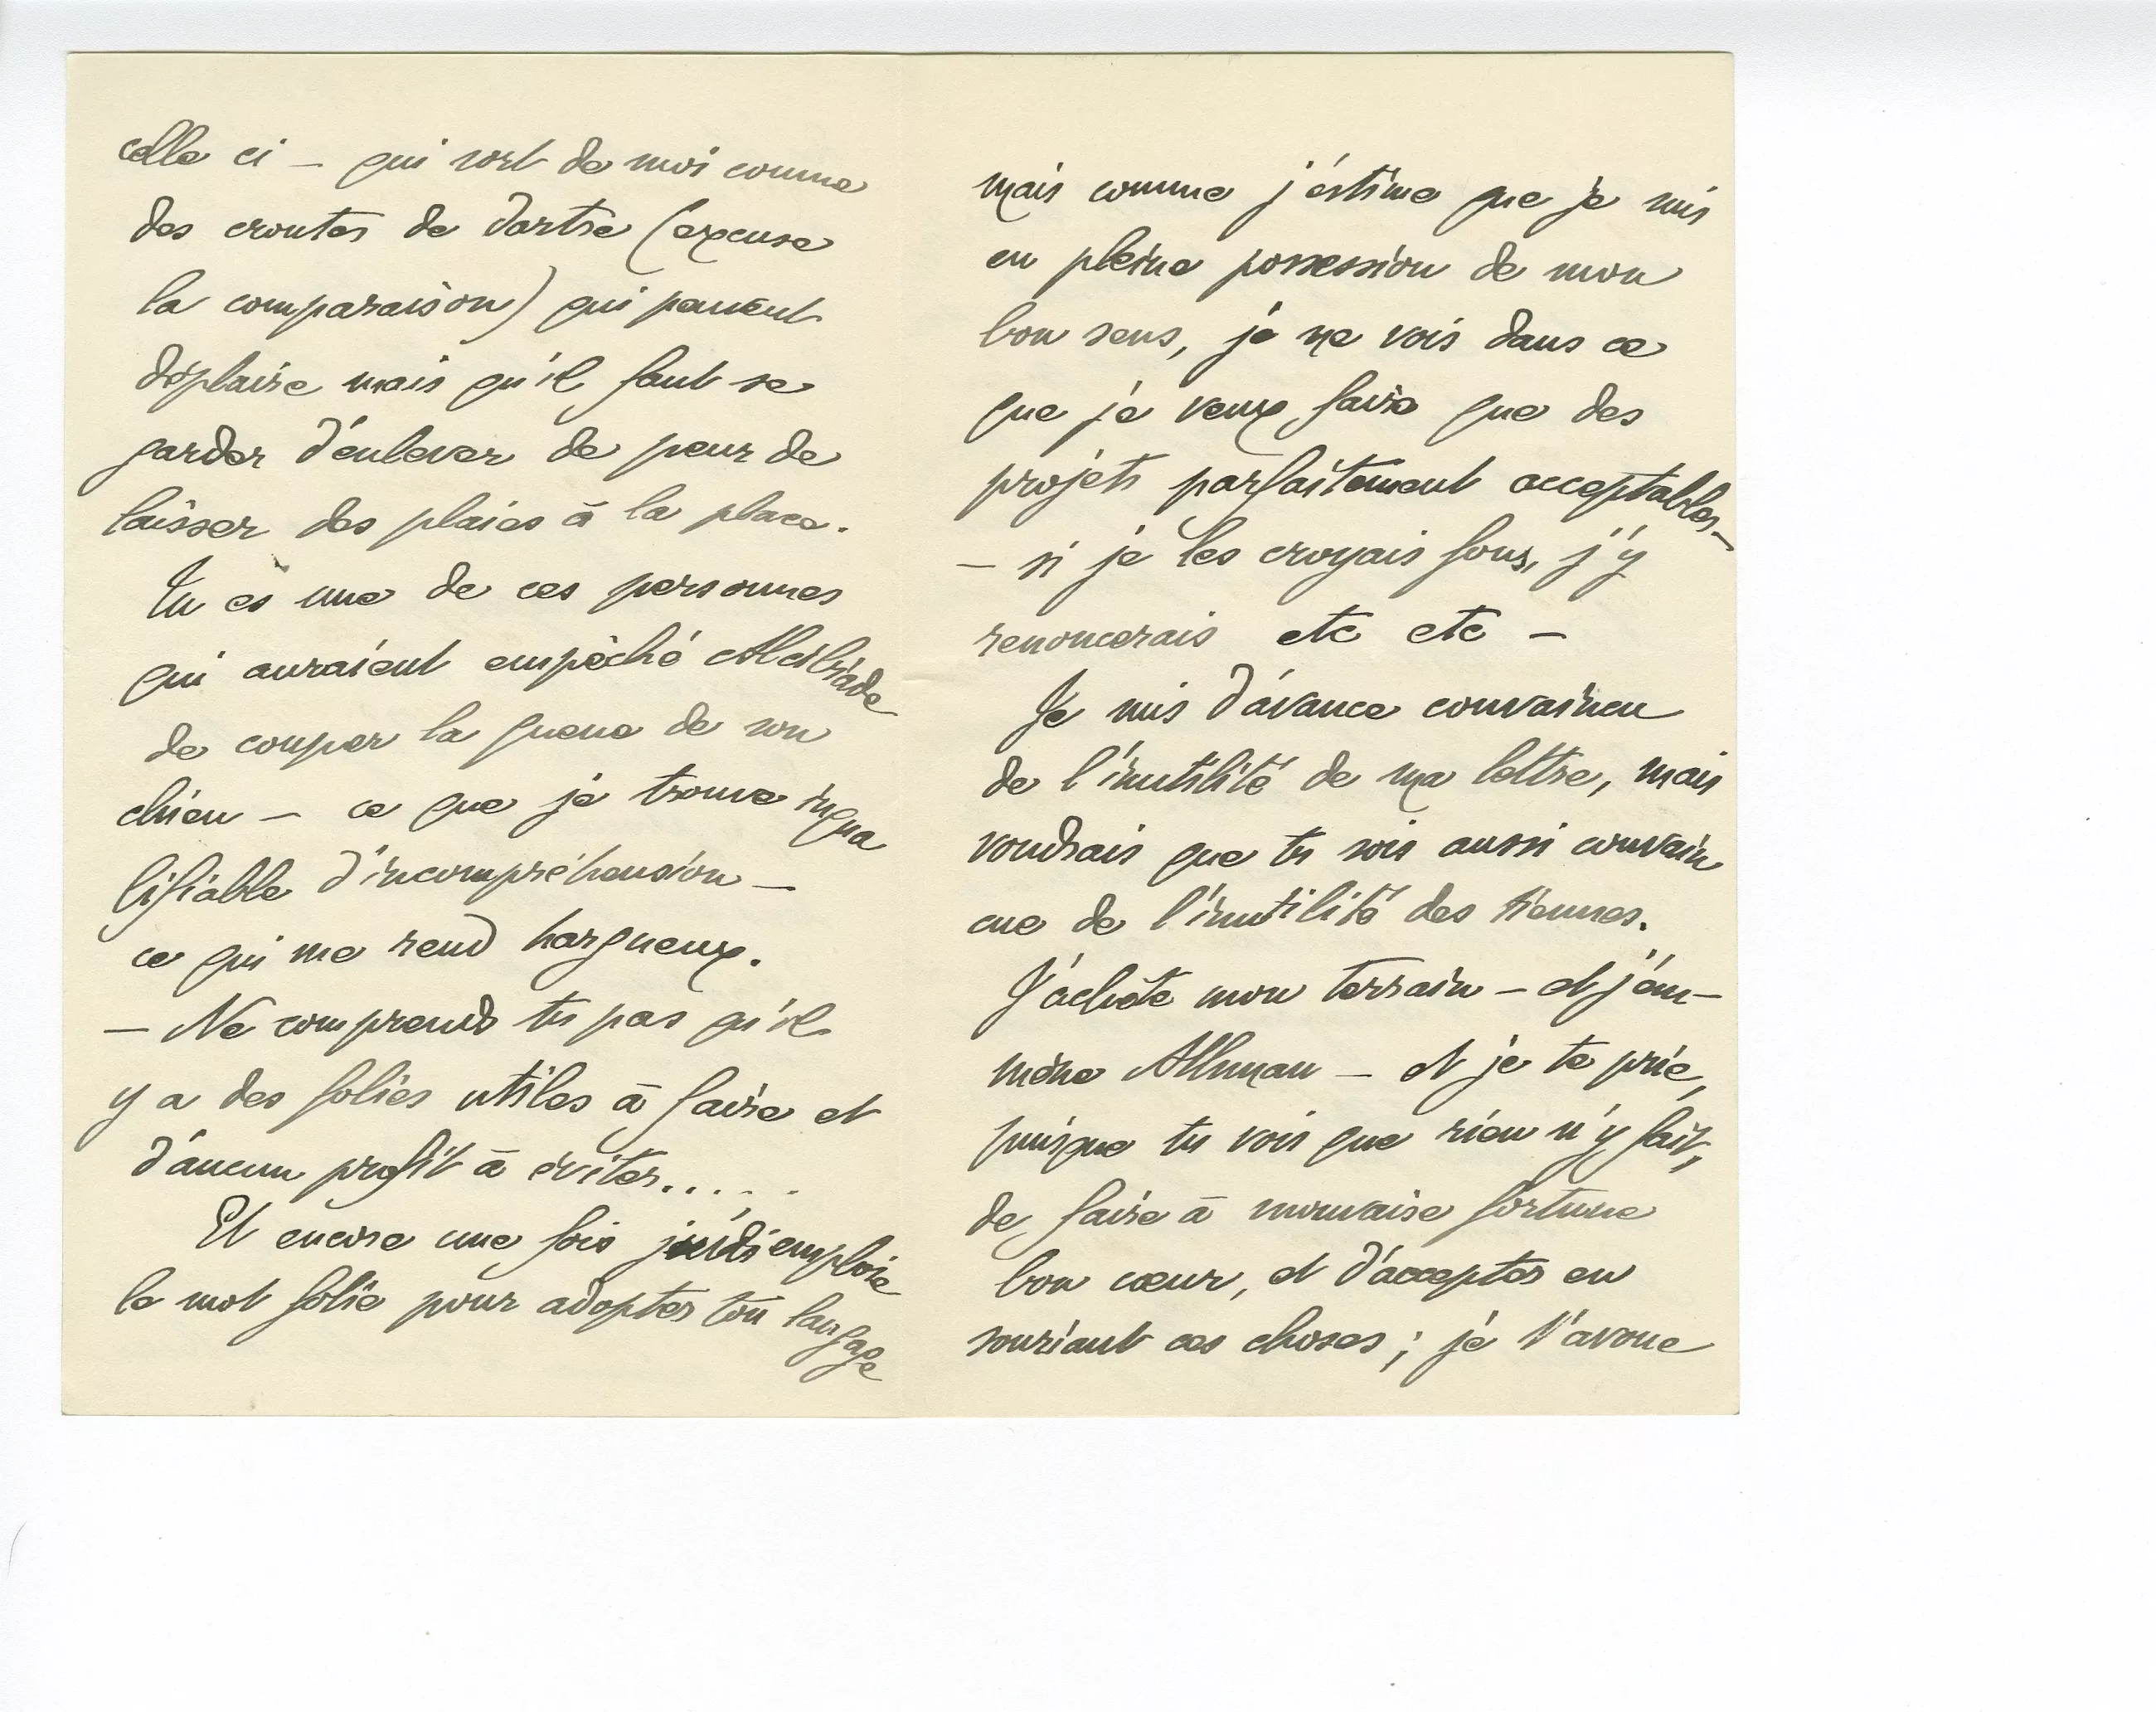 celle ci — qui sort de moi comme
des croutes de dartre (excuse
la comparaison) qui peuvent
déplaire mais qu'il faut se
garder d'enlever de peur de
laisser des plaies à la place.
Tu es une de ces personnes
qui auraient empêché Alcibiade
de couper la queue de son
chien — ce que je trouve inqua
lifiable d'incompréhension —
ce qui me rend hargneux.
— Ne comprends tu pas qu'il
y a des folies utiles à faire et
d'aucun profit à éviter.....
Et encore une fois j'emploie
le mot folie pour adopter ton langage
mais comme j'estime que je suis
en pleine possession de mon
bon sens, je ne vois dans ce
que je veux faire que des
projets parfaitement acceptables —
— si je les croyais fous, j'y
renoncerais etc etc —
Je suis d'avance convaincu
de l'inutilité de ma lettre, mais
voudrais que tu sois aussi convain
cue de l'inutilité des tiennes.
J'achète mon terrain — et j'em—
mène Athman — et je te prie,
puisque tu vois que rien n'y fait,
de faire à mauvaise fortune
bon cœur, et d'accepter en
souriant ces choses ; je t'avoue